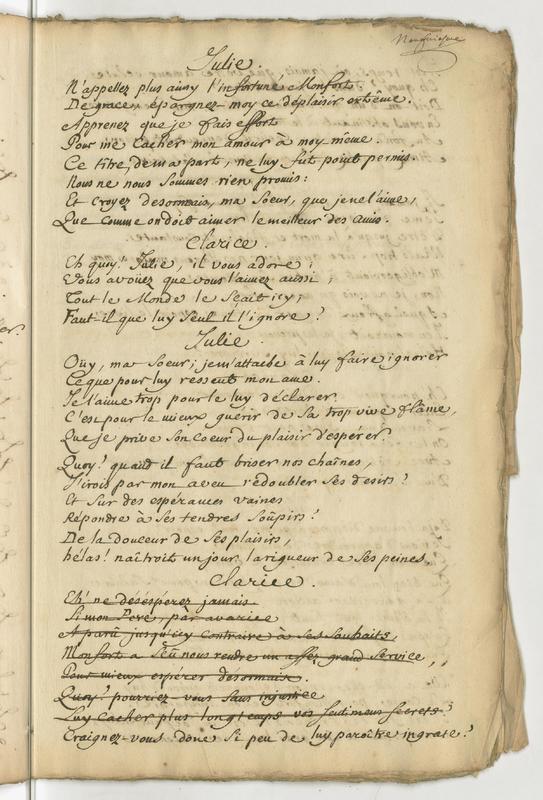 Julie.
N'appellez plus ainsy l'infortuné Monfort.
De grace, épargnez moy ce déplaisir extrême.
Apprenez que je fais effort
Pour me cacher mon amour à moy même.
Ce titre, de ma part, ne luy fut point permis.
Nous ne nous sommes rien promis:
Et croyez desormais, ma Soeur, que je ne l'aime,
Que comme on doit aimer le meilleur des amis.
Clarice.
Eh quoy! Julie, il vous adore;
Vous avoüez que vous l'aimez aussi;
Tout le Monde le sçait icy;
Faut-il que luy seul il l'ignore?
Julie.
Oüy, ma Soeur; je m'attache à luy faire ignorer
Ce que pour luy ressent mon ame.
Je l'aime trop pour le luy déclarer.
C'est pour le mieux guérir de sa trop vive flâme,
Que je prive son Coeur du plaisir d'espérer.
Quoy! quand il faut briser nos chaînes,
J'irois par mon aveu redoubler ses desirs?
Et sur des espérances vaines
Répondre à ses tendres soûpirs?
De la douceur de ses plaisirs,
hélas! naîtroit un jour la rigueur de ses peines.
Clarice.
Eh! ne desésperez jamais.
Si mon Pere, par avarice
A parû jusqu'icy contraire à ses souhaits,
Monfort a sçû nous rendre un assez grand service,
Pour mieux espérer désormais.
Quoy? pourriez-vous sans injustice
Luy cacher plus longtemps vos sentimens secrets?
Craignez-vous donc si peu de luy paroître ingrate?